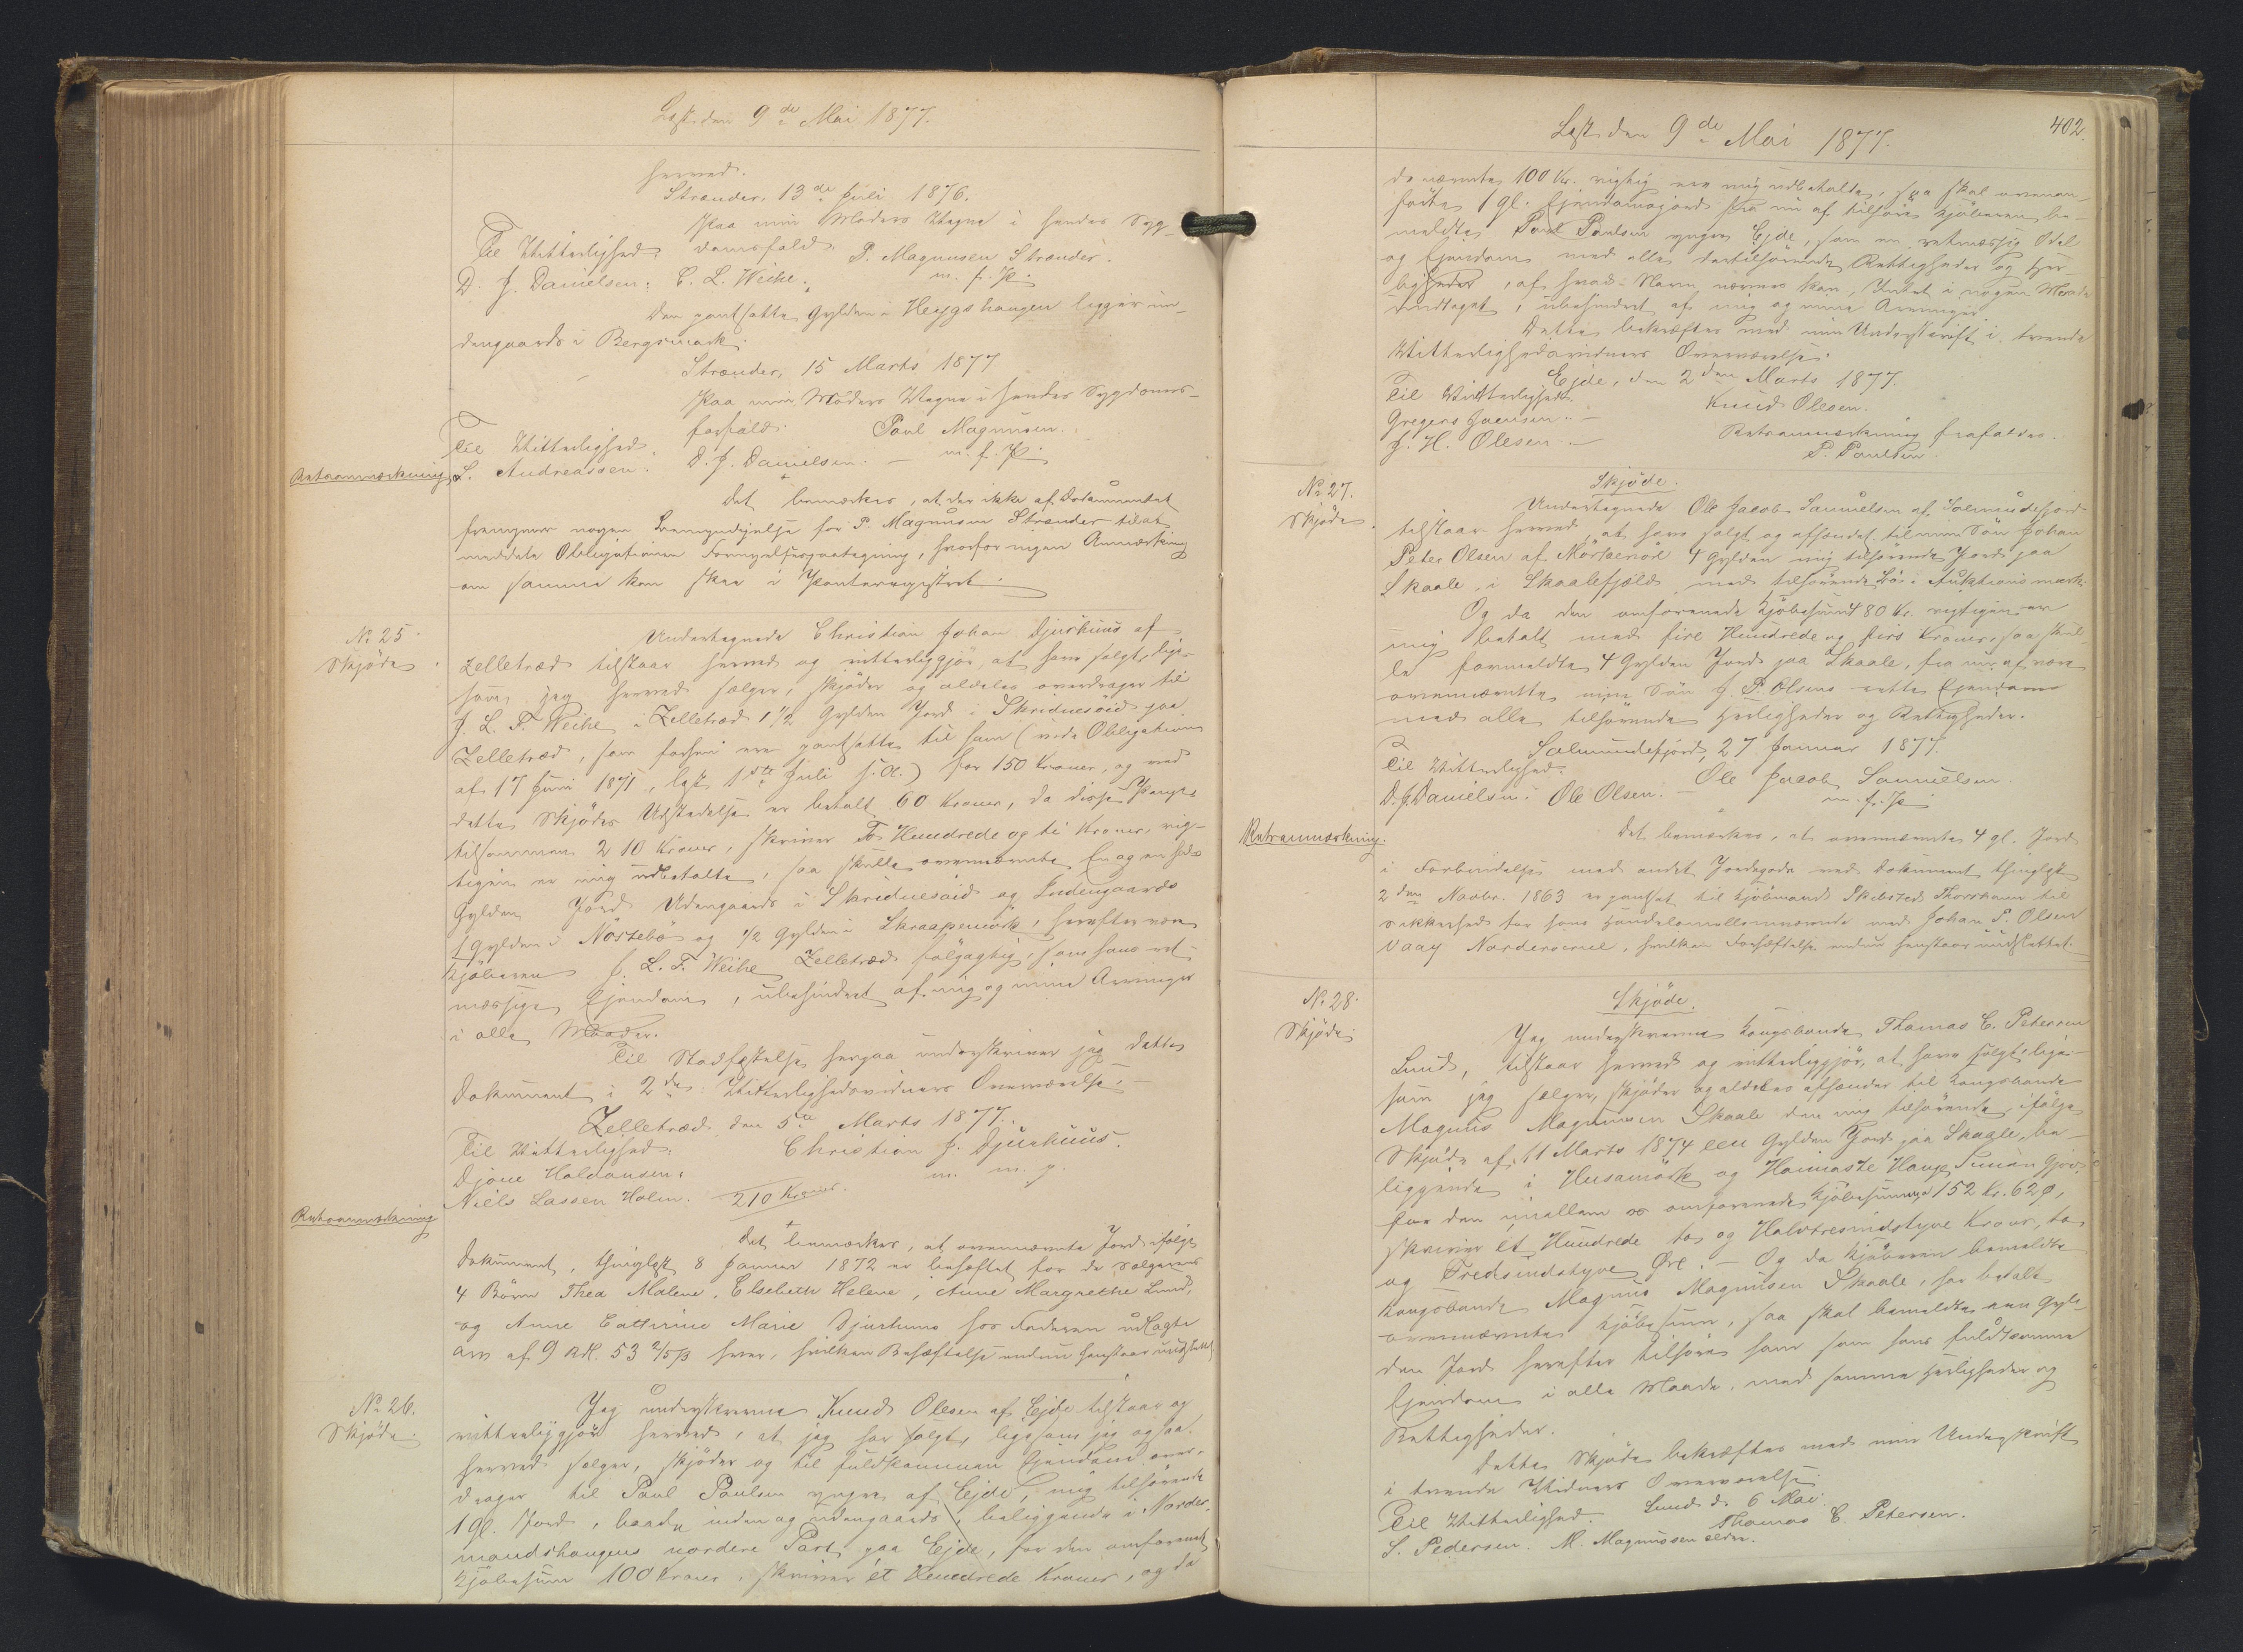 Læst den 9de Mai 1877.
herved.
Strænder, 13de Juli 1876.
Paa min Moders Vegne i hendes Syg-
Til Vitterlighed: domsfald. P. Magnusen Strænder.
D. J. Danielsen. C. L. Weihe. m. f. P.
Den pantsatte Gylden i Heygshaugen ligger in-
dengaards i Bergsmark.
Strænder, 15 Marts 1877
Paa min Moders Vegne i hendes Sygdoms-
forfald. Poul Magnusen.
Til Vitterlighed m. f. P.
L. Andreassen. D. J. Danielsen.
Retsanmærkning
Det bemærkes, at der ikke af Dokumentet
fremgaaer nogen Bemyndigelse for P. Magnusen Strænder til at
meddele Obligationen Fornyelsespaategning, hvorfor ingen Anmærkning
om samme kan skee i Panteregistret.
No 25
Skjöde
Undertegnede Christian Johan Djurhuus af
Zelletræd tilstaar herved og vitterliggjör, at have solgt, lige-
som jeg herved sælger, skjöder og aldeles overdrager til
J. L. F. Weihe i Zelletræd 1 1/2 Gylden Jord i Skriduesöid paa
Zelletræd, som forhen var pantsatte til ham (vide Obligation
af 17 Juni 1871, læst 1ste Juli s. A.) for 150 Kroner, og ved
dette Skjödes Udstedelse er betalt 60 Kroner, da disse Penge
tilsammen 210 Kroner, skriver To Hundrede og ti Kroner, rig-
tigen er mig udbetalte, saa skulle ovennævnte En og en halv
Gylden Jord Udengaards i Skriduesöid og Indengaards
1 Gylden i Nöstebö og 1/2 Gylden i Skraapemörk, herefter være
Kjöberen J. L. F. Weihe Zelletræd fölgagtig, som hans ret-
mæssige Ejendom, ubehindret af mig og mine Arvinger
i alle Maader.
Til Stadfæstelse herpaa underskriver jeg dette
Dokument i 2de Vitterlighedsvidners Overværelse.
Zelletræd den 5te Marts 1877.
Til Vitterlighed: Christian J. Djurhuus.
Djone Haldansen. m. m. p.
Niels Lassen Holm. 210 Kroner.
Retsanmærkning
Det bemærkes, at ovennævnte Jord ifölge
Dokument, thinglæst 8 Januar 1872 er behæftet for de Sælgerens
4 Börn Thea Malene, Elsebeth Helene, Anne Margrethe Lund,
og Anne Cathrine Marie Djurhuus hos Faderen udlagte
Arv af 9 Rdl. 53 2/5 ß hver, hvilken Behæftelse endnu henstaar uudslettet
No 26.
Skjöde.
Jeg underskrevne Knud Olesen af Ejde tilstaar og
vitterliggjör herved, at jeg har solgt, ligesom jeg ogsaa
herved sælger, skjöder og til fuldkommen Ejendom over-
drager til Poul Poulsen yngre af Ejde, mig tilhörende
1 gl. Jord, baade inden og udengaards, beliggende i Norder-
mandshaugens nordere Part paa Ejde, for den omforenede
Kjöbesum 100 Kroner, skriver ét Hundrede Kroner, og da
402.
Læst den 9de Mai 1877.
de nævnte 100 Kr. rigtig er mig udbetalte, saa skal ovenan-
förte 1 gl. Ejendomsjord fra nu af tilhöre Kjöberen be-
meldte Poul Poulsen yngre Ejde, som en retmæssig Odel
og Ejendom med alle dertilhörende Rettigheder og Her-
ligheder, af hvad Navn nævnes kan, Intet i nogen Maade
undtaget, ubehindret af mig og mine Arvinger.
Dette bekræftes med min Underskrift i tvende
Vitterlighedsvidners Overværelse.
Ejde, den 2den Marts 1877.
Til Vitterlighed: Knud Olesen.
Gregers Joensen.
J. H. Olesen. Retsanmærkning frafaldes.
P. Poulsen.
No 27.
Skjöde.
Skjöde.
Undertegnede Ole Jacob Samuelsen af Salmundefjord
tilstaar herved at have solgt og afhændet til min Sön Johan
Peter Olsen af Mörkeniöre 4 Gylden mig tilhörende Jord paa
Skaale, i Skaalefjæld, med tilhörende Lod i Auktionsmark.
Og da den omforenede Kjöbesum 480 Kr. rigtigen er
mig betalt med fire Hundrede og firs Kroner, saa skul-
le formeldte 4 Gylden Jord paa Skaale, fra nu af være
ovennævnte min Sön J. P. Olsens rette Ejendom
med alle tilhörende Herligheder og Rettigheder.
Salmundefjord, 27 Januar 1877.
Til Vitterlighed: Ole Jacob Samuelsen
D. J. Danielsen. Ole Olsen. m. f. P.
Retsanmærkning.
Det bemærkes, at ovennævnte 4 gl. Jord
i Forbindelse med andet Jordegods ved Dokument thinglyst
2den Novbr. 1863 er pantsat til Kjöbmand Skibsted Thorshavn til
Sikkerhed for hans Handelsmellemværende med Johan P. Olsen
Vaag Norderoerne, hvilken Behæftelse endnu henstaar uudslettet.
No 28.
Skjöde.
Skjöde.
Jeg underskrevne Kongsbonde Thomas C. Petersen
Lund, tilstaar herved og vitterliggjör, at have solgt, lige-
som jeg sælger, skjöder og aldeles afhænder til Kongsbonde
Magnus Magnusen Skaale den mig tilhörende, ifölge
Skjöde af 11 Marts 1874 een Gylden Jord paa Skaale, be-
liggende i Husamörk og Haimaste Hauge
for den imellem os omforenede Kjöbesumma 152 Kr. 62 Ø,
skriver ét Hundrede to og Halvtresindstyve Kroner, to
og Tredsindstyve Øre. – Og da Kjöberen bemeldte
Kongsbonde Magnus Magnusen Skaale, har betalt
ovennævnte Kjöbesum, saa skal bemeldte een Gyl-
den Jord herefter tilhöre ham som hans fuldkomne
Ejendom i alle Maade, med samme Herligheder og
Rettigheder.
Dette Skjöde bekræftes med min Underskrift
i tvende Vidners Overværelse.
Lund d. 6 Mai.
Til Vitterlighed. Thomas C. Petersen.
S. Pedersen. M. Magnussen